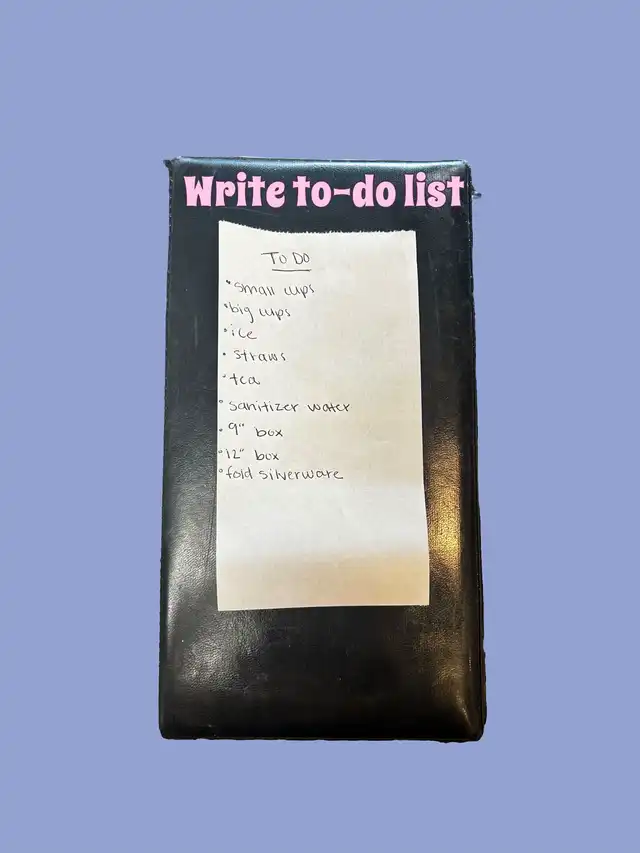 Write to-do list
To Do
• small cups
• big cups
• ice
• straws
• tea
• sanitizer water
• 9" box
• 12" box
• fold silverware